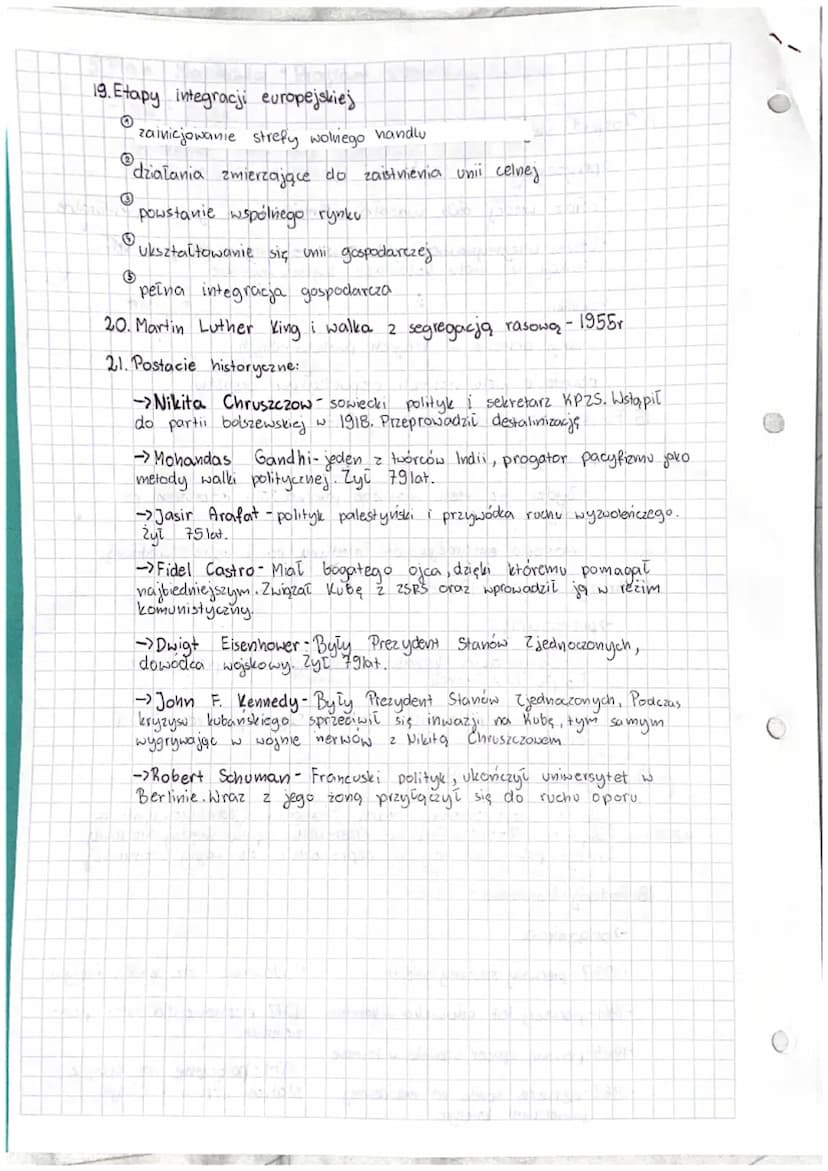 19. Etapy integracji europejskiej
① zainicjowanie strefy wolnego handlu
② działania zmierzające do zaistnienia unii celnej
③ powstanie wspólnego rynku
④ ukształtowanie się unii gospodarczej
⑤ pełna integracja gospodarcza
20. Martin Luther King i walka z segregacją rasową - 1955r
21. Postacie historyczne:
→ Nikita Chruszczow - sowiecki polityk i sekretarz KPZS. Wstąpił
do partii bolszewskiej w 1918. Przeprowadził destalinizację
→ Mohandas Gandhi - jeden z twórców Indii, progator pacyfizmu jako
metody walki politycznej. Żył 79 lat.
→ Jasir Arafat - polityk palestyński i przywódca ruchu wyzwoleńczego.
Żył 75 lat.
→ Fidel Castro - Miał bogatego ojca, dzięki któremu pomagał
najbiedniejszym. Związał Kubę z ZSRS oraz wprowadził ją w reżim
komunistyczny.
→ Dwigt Eisenhower - Były Prezydent Stanów Zjednoczonych,
dowódca wojskowy. Żył 79 lat.
→ John F. Kennedy - Były Prezydent Stanów Zjednoczonych, Podczas
kryzysu kubańskiego sprzeciwił się inwazji na Kubę, tym samym
wygrywając w wojnie nerwów z Nikitą Chruszczowem
→ Robert Schuman - Francuski polityk, ukończył uniwersytet w
Berlinie. Wraz z jego żoną przyłączył się do ruchu oporu.